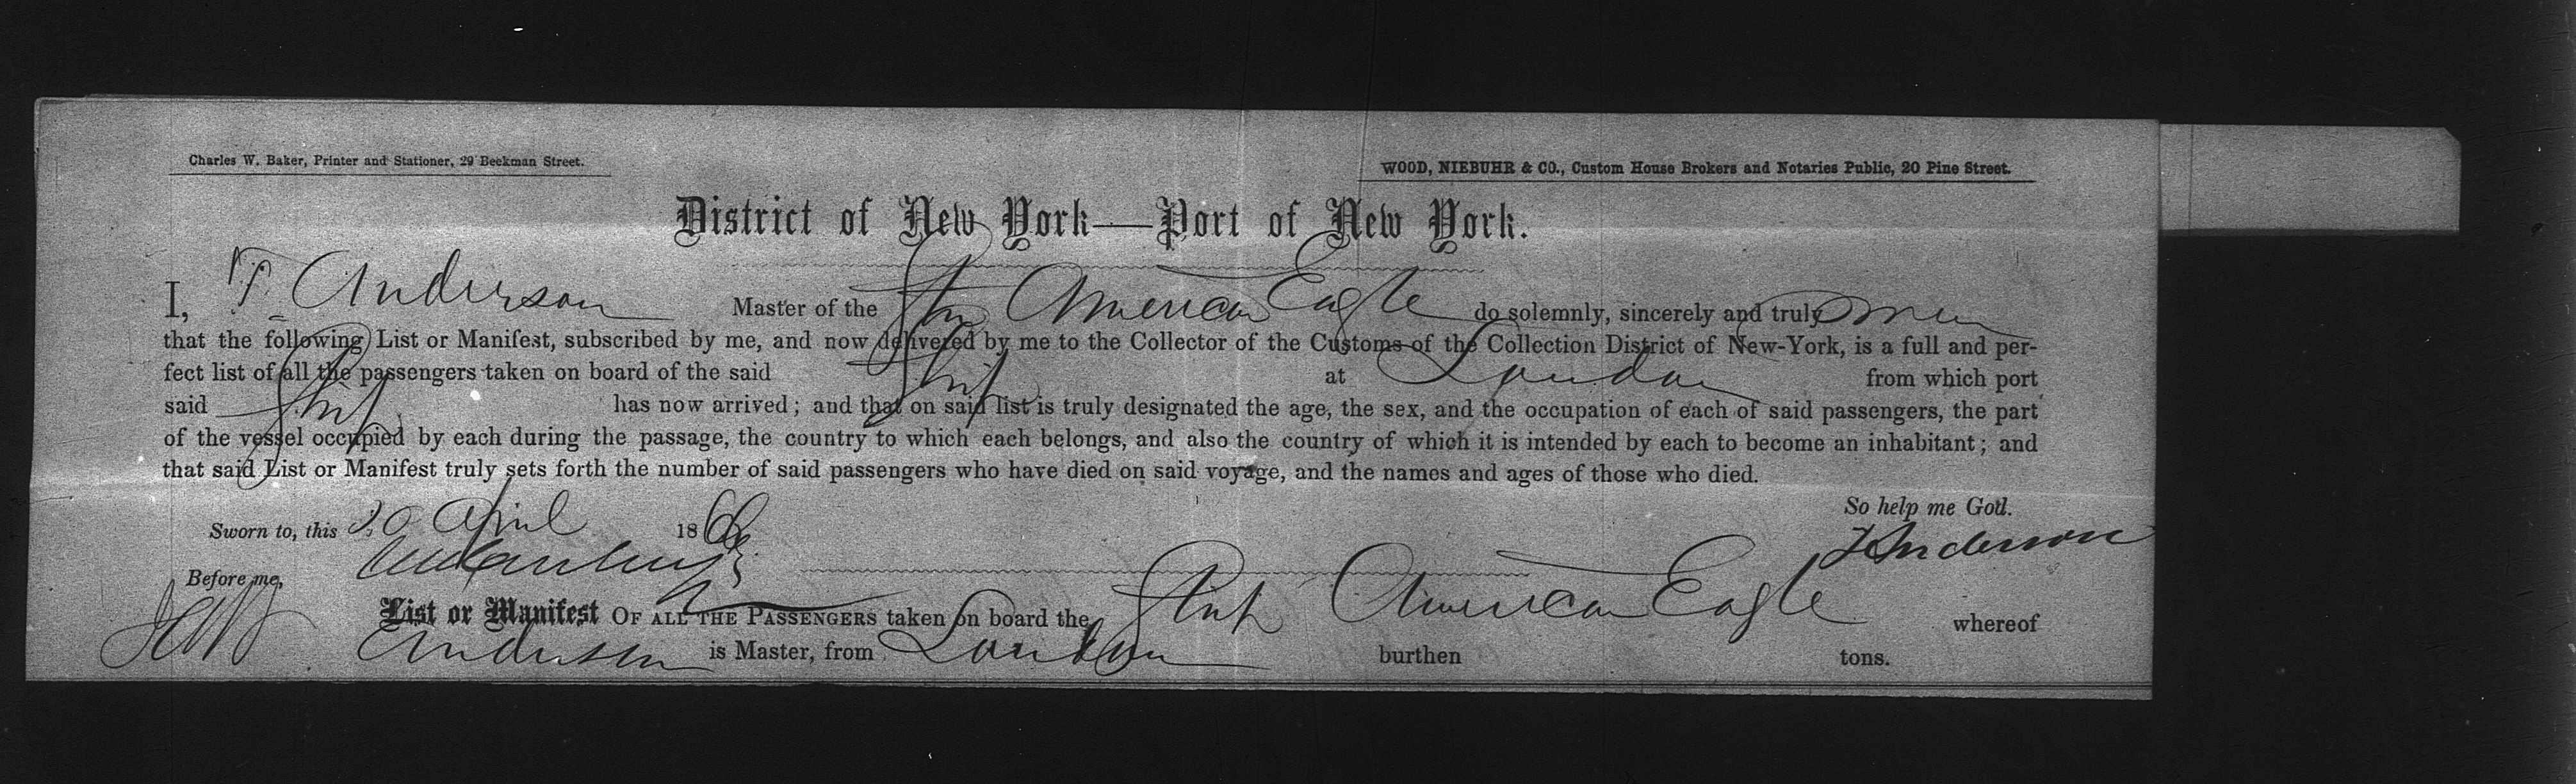 Charles W. Baker, Printer and Stationer, 29 Beekman Street.
WOOD, NIEBUHR & CO., Custom House Brokers and Notaries Public, 20 Pine Street.
District of New York—Port of New York.
I, T. Anderson Master of the Ship American Eagle do solemnly, sincerely and truly swear
that the following List or Manifest, subscribed by me, and now delivered by me to the Collector of the Customs of the Collection District of New-York, is a full and per-
fect list of all the passengers taken on board of the said Ship at London from which port
said Ship has now arrived; and that on said list is truly designated the age, the sex, and the occupation of each of said passengers, the part
of the vessel occupied by each during the passage, the country to which each belongs, and also the country of which it is intended by each to become an inhabitant; and
that said List or Manifest truly sets forth the number of said passengers who have died on said voyage, and the names and ages of those who died.
So help me God.
Sworn to, this 30 April 186
Anderson
Before me,
List or Manifest OF ALL THE PASSENGERS taken on board the Ship American Eagle whereof
Anderson is Master, from London burthen tons.